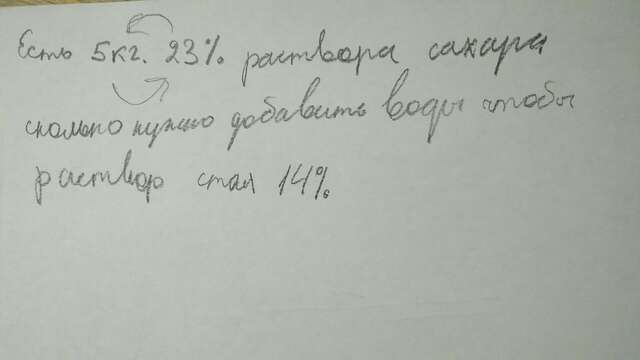 Есть 5кг. 23% раствора сахара
сколько нужно добавить воды чтобы
раствор стал 14%